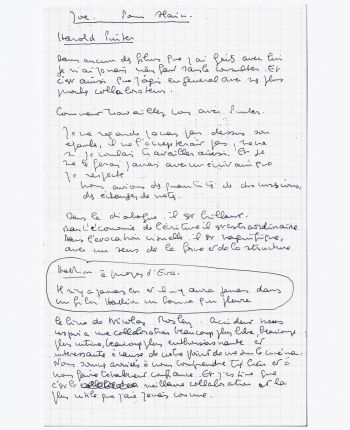 Joe. Pour Alain.
Harold Pinter
Dans aucun des films que j'ai faits avec lui
je n'ai jamais rien fait sans le consulter. Et
c'est ainsi que j'agis en général avec mes plus
grands collaborateurs.
Comment travaillez vous avec Pinter.
Je ne regarde jamais par dessus son
épaule, il ne l'accepterait pas, même
si je voulais travailler ainsi. Et je
ne le ferai jamais avec un écrivain que
je respecte.
Nous avions des quantités de discussions,
des échanges de notes.
Dans le dialogue, il est brillant.
Dans l'économie de l'écriture il est extraordinaire
Dans l'évocation visuelle, il est magnifique,
avec un sens de la forme et de la structure
à propos d'Eva.
Il n'y a jamais eu et il n'y aura jamais dans
un film un homme qui pleure.
Le livre de Nicolas Mosley Accident nous
a collaboration beaucoup plus libre, beaucoup
plus intime, beaucoup plus enthousiasmante et
intéressante à cause de notre point de vue sur le cinéma.
Nous sommes arrivés à nous comprendre très bien et à
nous faire totalement confiance. Et je dirai que
c'est la meilleure collaboration et la
plus utile que j'ai jamais connue.